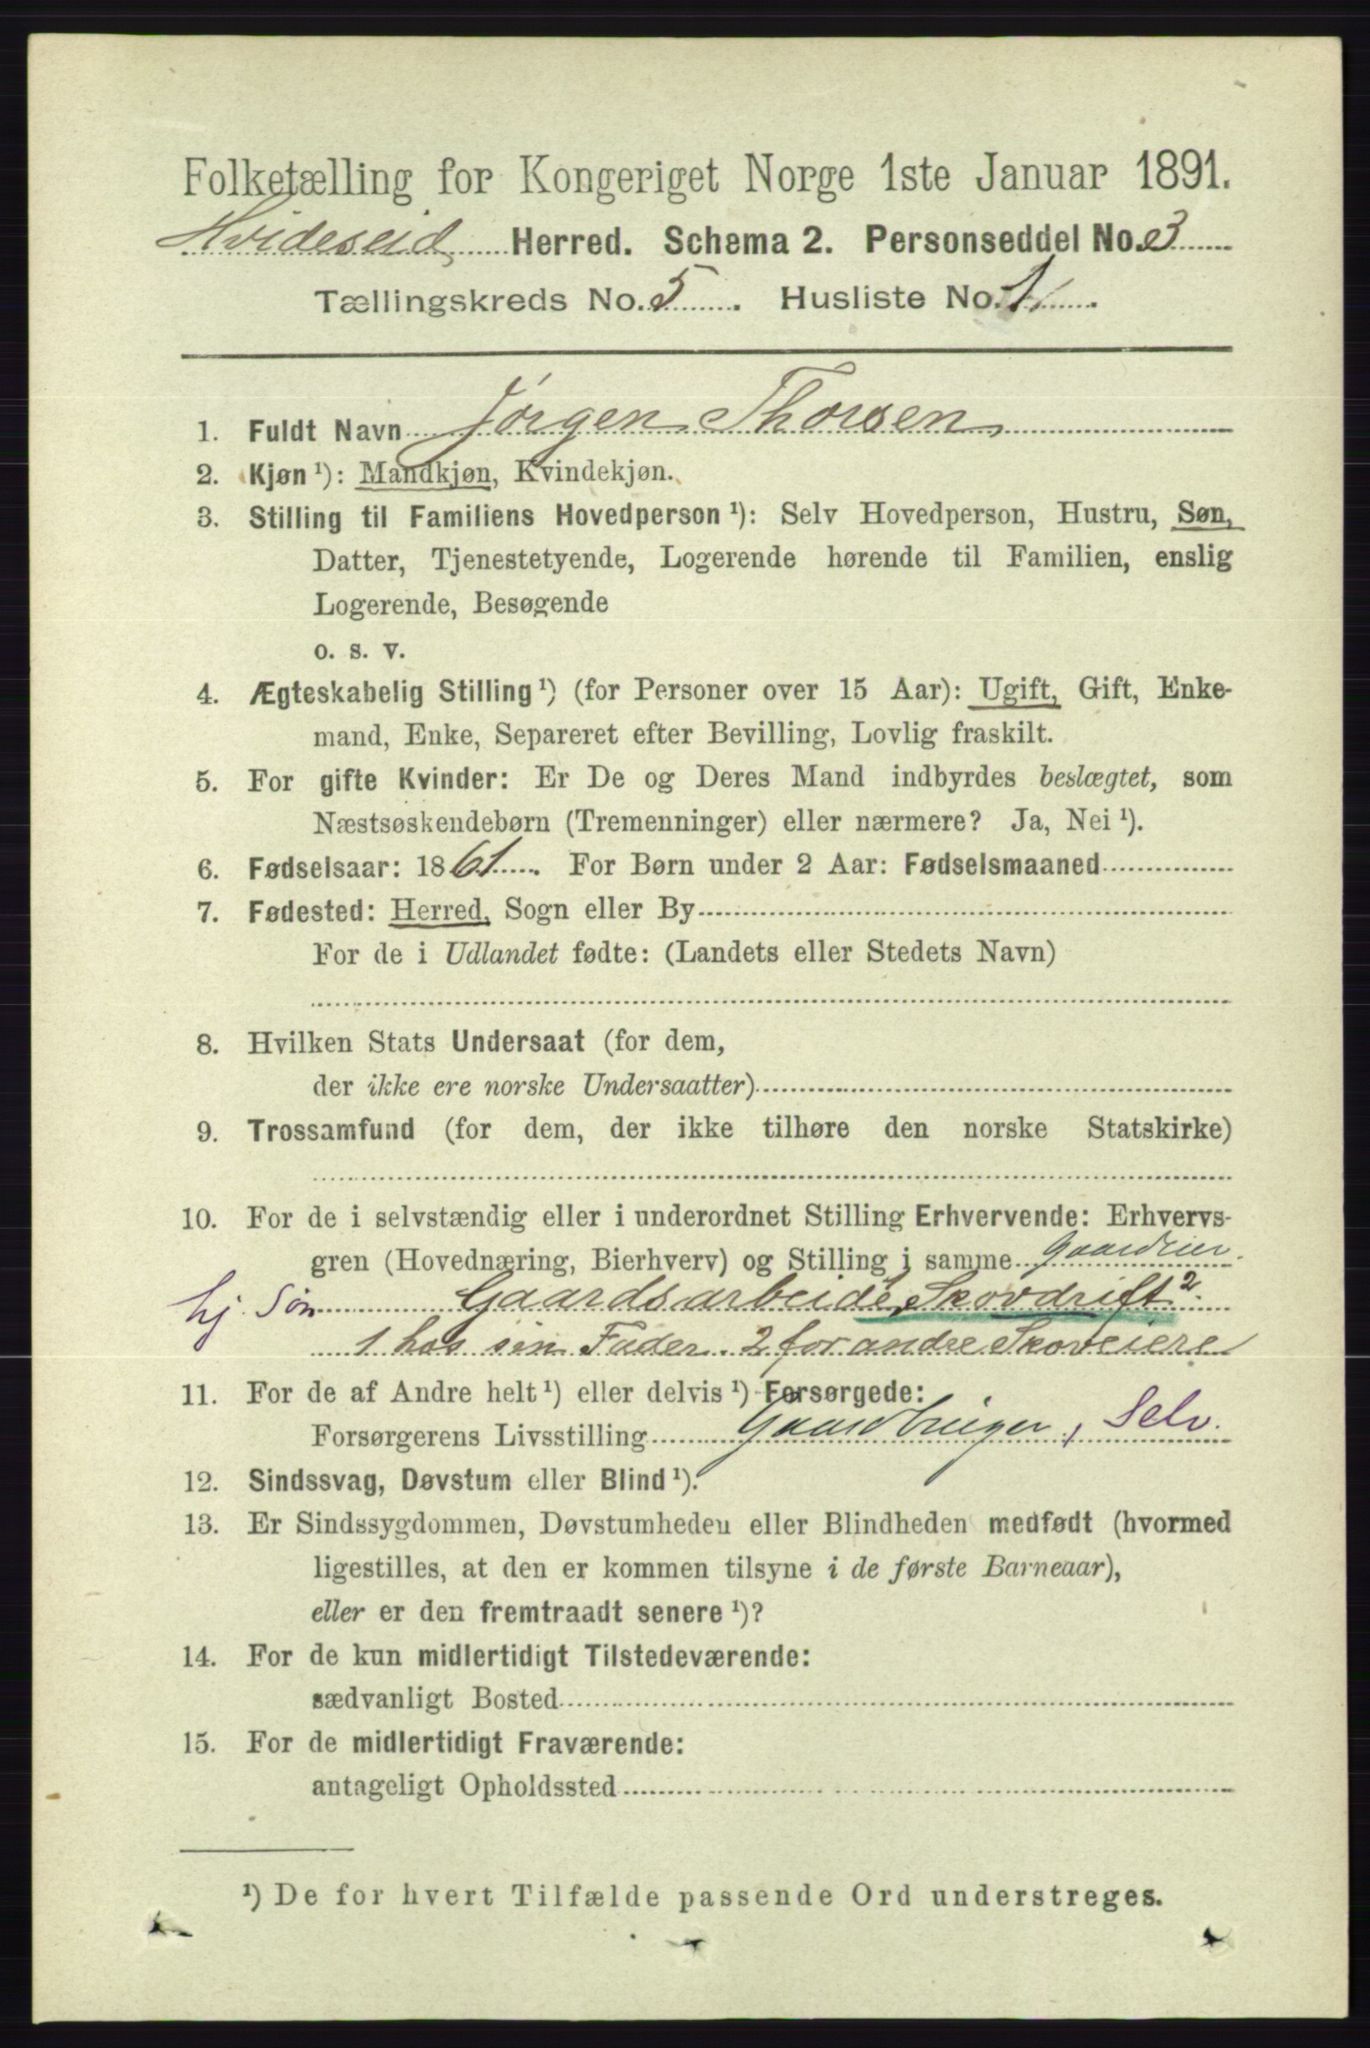 Folketælling for Kongeriget Norge 1ste Januar 1891.
Hvideseid Herred. Schema 2. Personseddel No. 3
Tællingskreds No. 5. Husliste No. 1.
1. Fuldt Navn Jørgen Thorsen
2. Kjøn ¹): Mandkjøn, Kvindekjøn.
3. Stilling til Familiens Hovedperson ¹): Selv Hovedperson, Hustru, Søn,
Datter, Tjenestetyende, Logerende hørende til Familien, enslig
Logerende, Besøgende
o. s. v.
4. Ægteskabelig Stilling ¹) (for Personer over 15 Aar): Ugift, Gift, Enke-
mand, Enke, Separeret efter Bevilling, Lovlig fraskilt.
5. For gifte Kvinder: Er De og Deres Mand indbyrdes beslægtet, som
Næstsøskendebørn (Tremenninger) eller nærmere? Ja, Nei ¹).
6. Fødselsaar: 1861. For Børn under 2 Aar: Fødselsmaaned
7. Fødested: Herred, Sogn eller By
For de i Udlandet fødte: (Landets eller Stedets Navn)
8. Hvilken Stats Undersaat (for dem,
der ikke ere norske Undersaatter)
9. Trossamfund (for dem, der ikke tilhøre den norske Statskirke)
10. For de i selvstændig eller i underordnet Stilling Erhvervende: Erhvervs-
gren (Hovednæring, Bierhverv) og Stilling i samme Gaardeier.
hj. Søn Gaardsarbeide, Skovdrift ².
1 hos sin Fader. 2 for andre Skoveiere
11. For de af Andre helt ¹) eller delvis ¹) Forsørgede:
Forsørgerens Livsstilling Gaardbruger, Selv.
12. Sindssvag, Døvstum eller Blind ¹).
13. Er Sindssygdommen, Døvstumheden eller Blindheden medfødt (hvormed
ligestilles, at den er kommen tilsyne i de første Barneaar),
eller er den fremtraadt senere ¹)?
14. For de kun midlertidigt Tilstedeværende:
sædvanligt Bosted
15. For de midlertidigt Fraværende:
antageligt Opholdssted
¹) De for hvert Tilfælde passende Ord understreges.